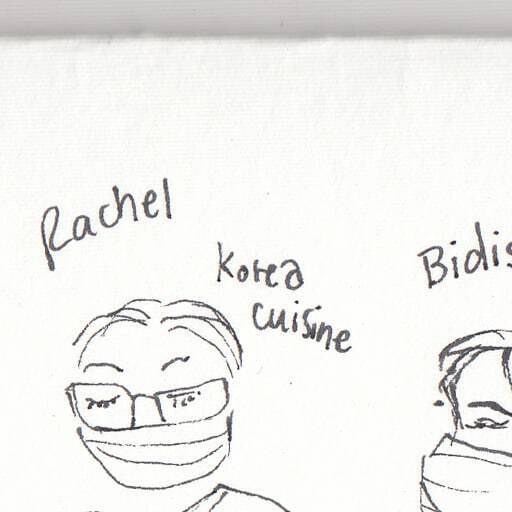 Rachel
Korea
cuisine
Bidis